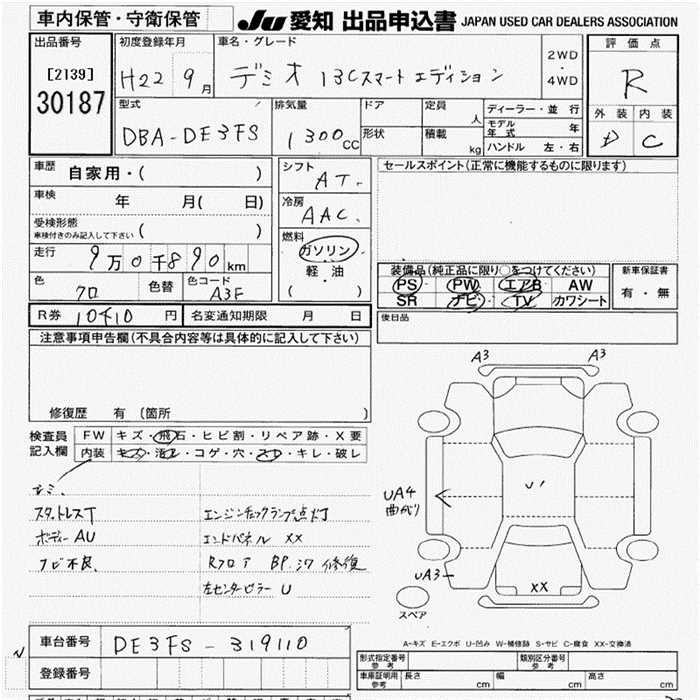 車内保管・守衛保管
JU 愛知 出品申込書 JAPAN USED CAR DEALERS ASSOCIATION
出品番号
[2139]
30187
初度登録年月
H22 9月
車名・グレード
デミオ 13Cスマートエディション
2WD
・
4WD
評価点
R
外装 内装
D C
型式
DBA-DE3FS
排気量
1300cc
ドア
形状
定員
人
積載
kg
ディーラー・並行
モデル年式 年
ハンドル 左・右
車歴 自家用・( )
車検 年 月( 日)
受検形態
車検付きのみ記入して下さい ( )
走行 9万0千890km
色 クロ
色替
色コード A3F
シフト AT
冷房 AAC
燃料
ガソリン
軽油
( )
セールスポイント(正常に機能するものに限ります)
装備品(純正品に限り○をつけてください)
PS PW エアB AW
SR ナビ TV カワシート
新車保証書
有・無
R券 10410 円
名変通知期限 月 日
後日品
注意事項申告欄(不具合内容等は具体的に記入して下さい)
修復歴 有 (箇所 )
検査員記入欄
FW キズ・飛石・ヒビ割・リペア跡・X要
内装 キズ・汚レ・コゲ・穴・スレ・キレ・破レ
スタットレスT
ボディーAU
ナビ不良
エンジンチェックランプ点灯
エンドパネル XX
Rフロア BP.シワ 修復
左センターピラー U
A3 A3
UA4
曲がり
U'
UA3
XX
スペア
A-キズ E-エクボ U-凹み W-補修跡 S-サビ C-腐食 XX-交換済
車台番号 DE3FS-319110
登録番号
形式指定番号 参考
類別区分番号 参考
車庫証明用 参考 長さ cm 幅 cm 高さ cm